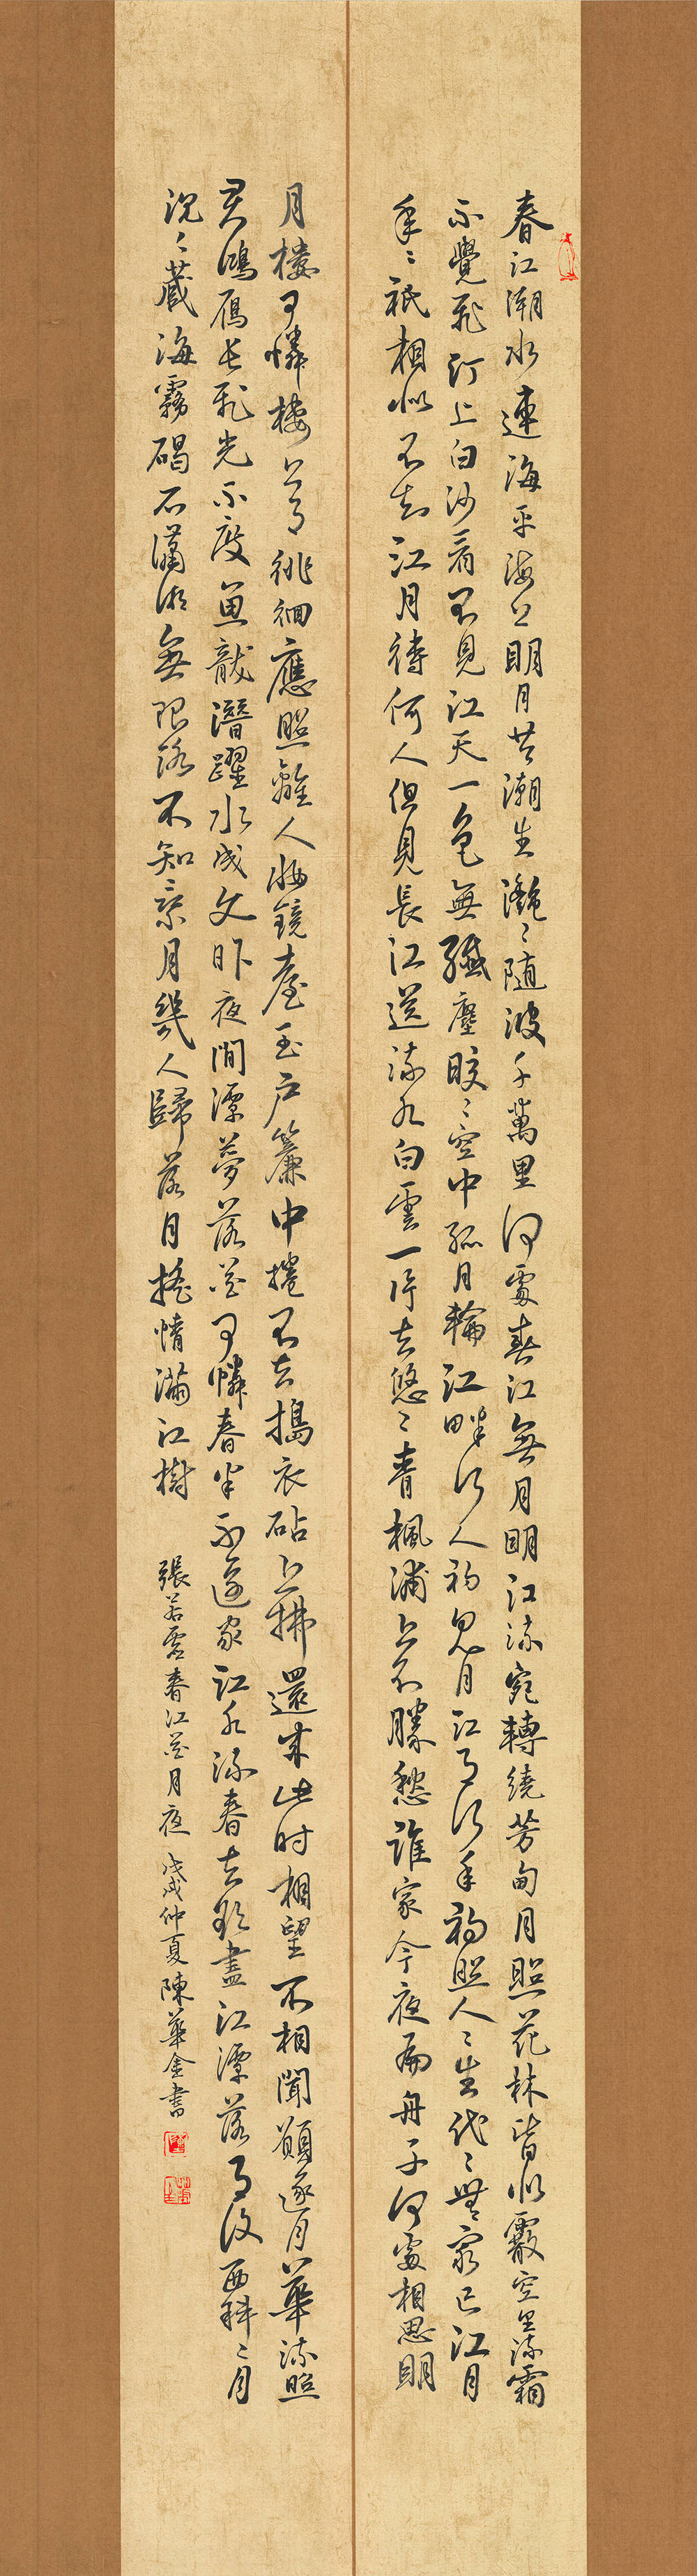 春江潮水連海平海上明月共潮生灧〻随波千萬里何處春江無月明江流宛轉繞芳甸月照花林皆似霰空里流霜
不覺飛汀上白沙看不見江天一色無纖塵皎〻空中孤月輪江畔何人初見月江月何年初照人〻生代〻無窮已江月
年〻祇相似不知江月待何人但見長江送流水白雲一片去悠〻青楓浦上不勝愁誰家今夜扁舟子何處相思明
月樓可憐樓上月徘徊應照離人妝鏡臺玉戶簾中捲不去搗衣砧上拂還來此时相望不相聞願逐月華流照
君鴻雁長飛光不度魚龍潛躍水成文昨夜閒潭夢落花可憐春半不還家江水流春去欲盡江潭落月復西斜〻月
沉〻藏海霧碣石瀟湘無限路不知乘月幾人歸落月搖情滿江樹 張若虛春江花月夜 戊戌仲夏陳華金書